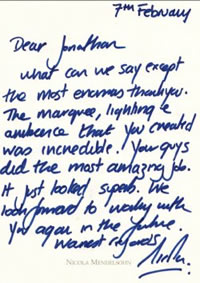 7th February
Dear Jonathan
what can we say except
the most enormous thankyou.
The marquee, lighting &
ambience that you created
was incredible. You guys
did the most amazing job.
It just looked superb. We
look forward to working with
you again in the future.
Warmest regards
NICOLA MENDELSOHN